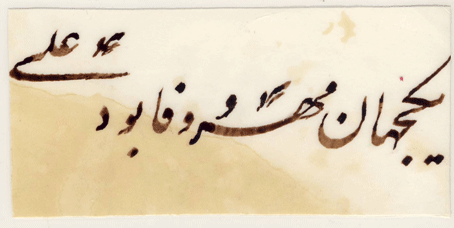 یکجهان مهر و وفا بود
علی